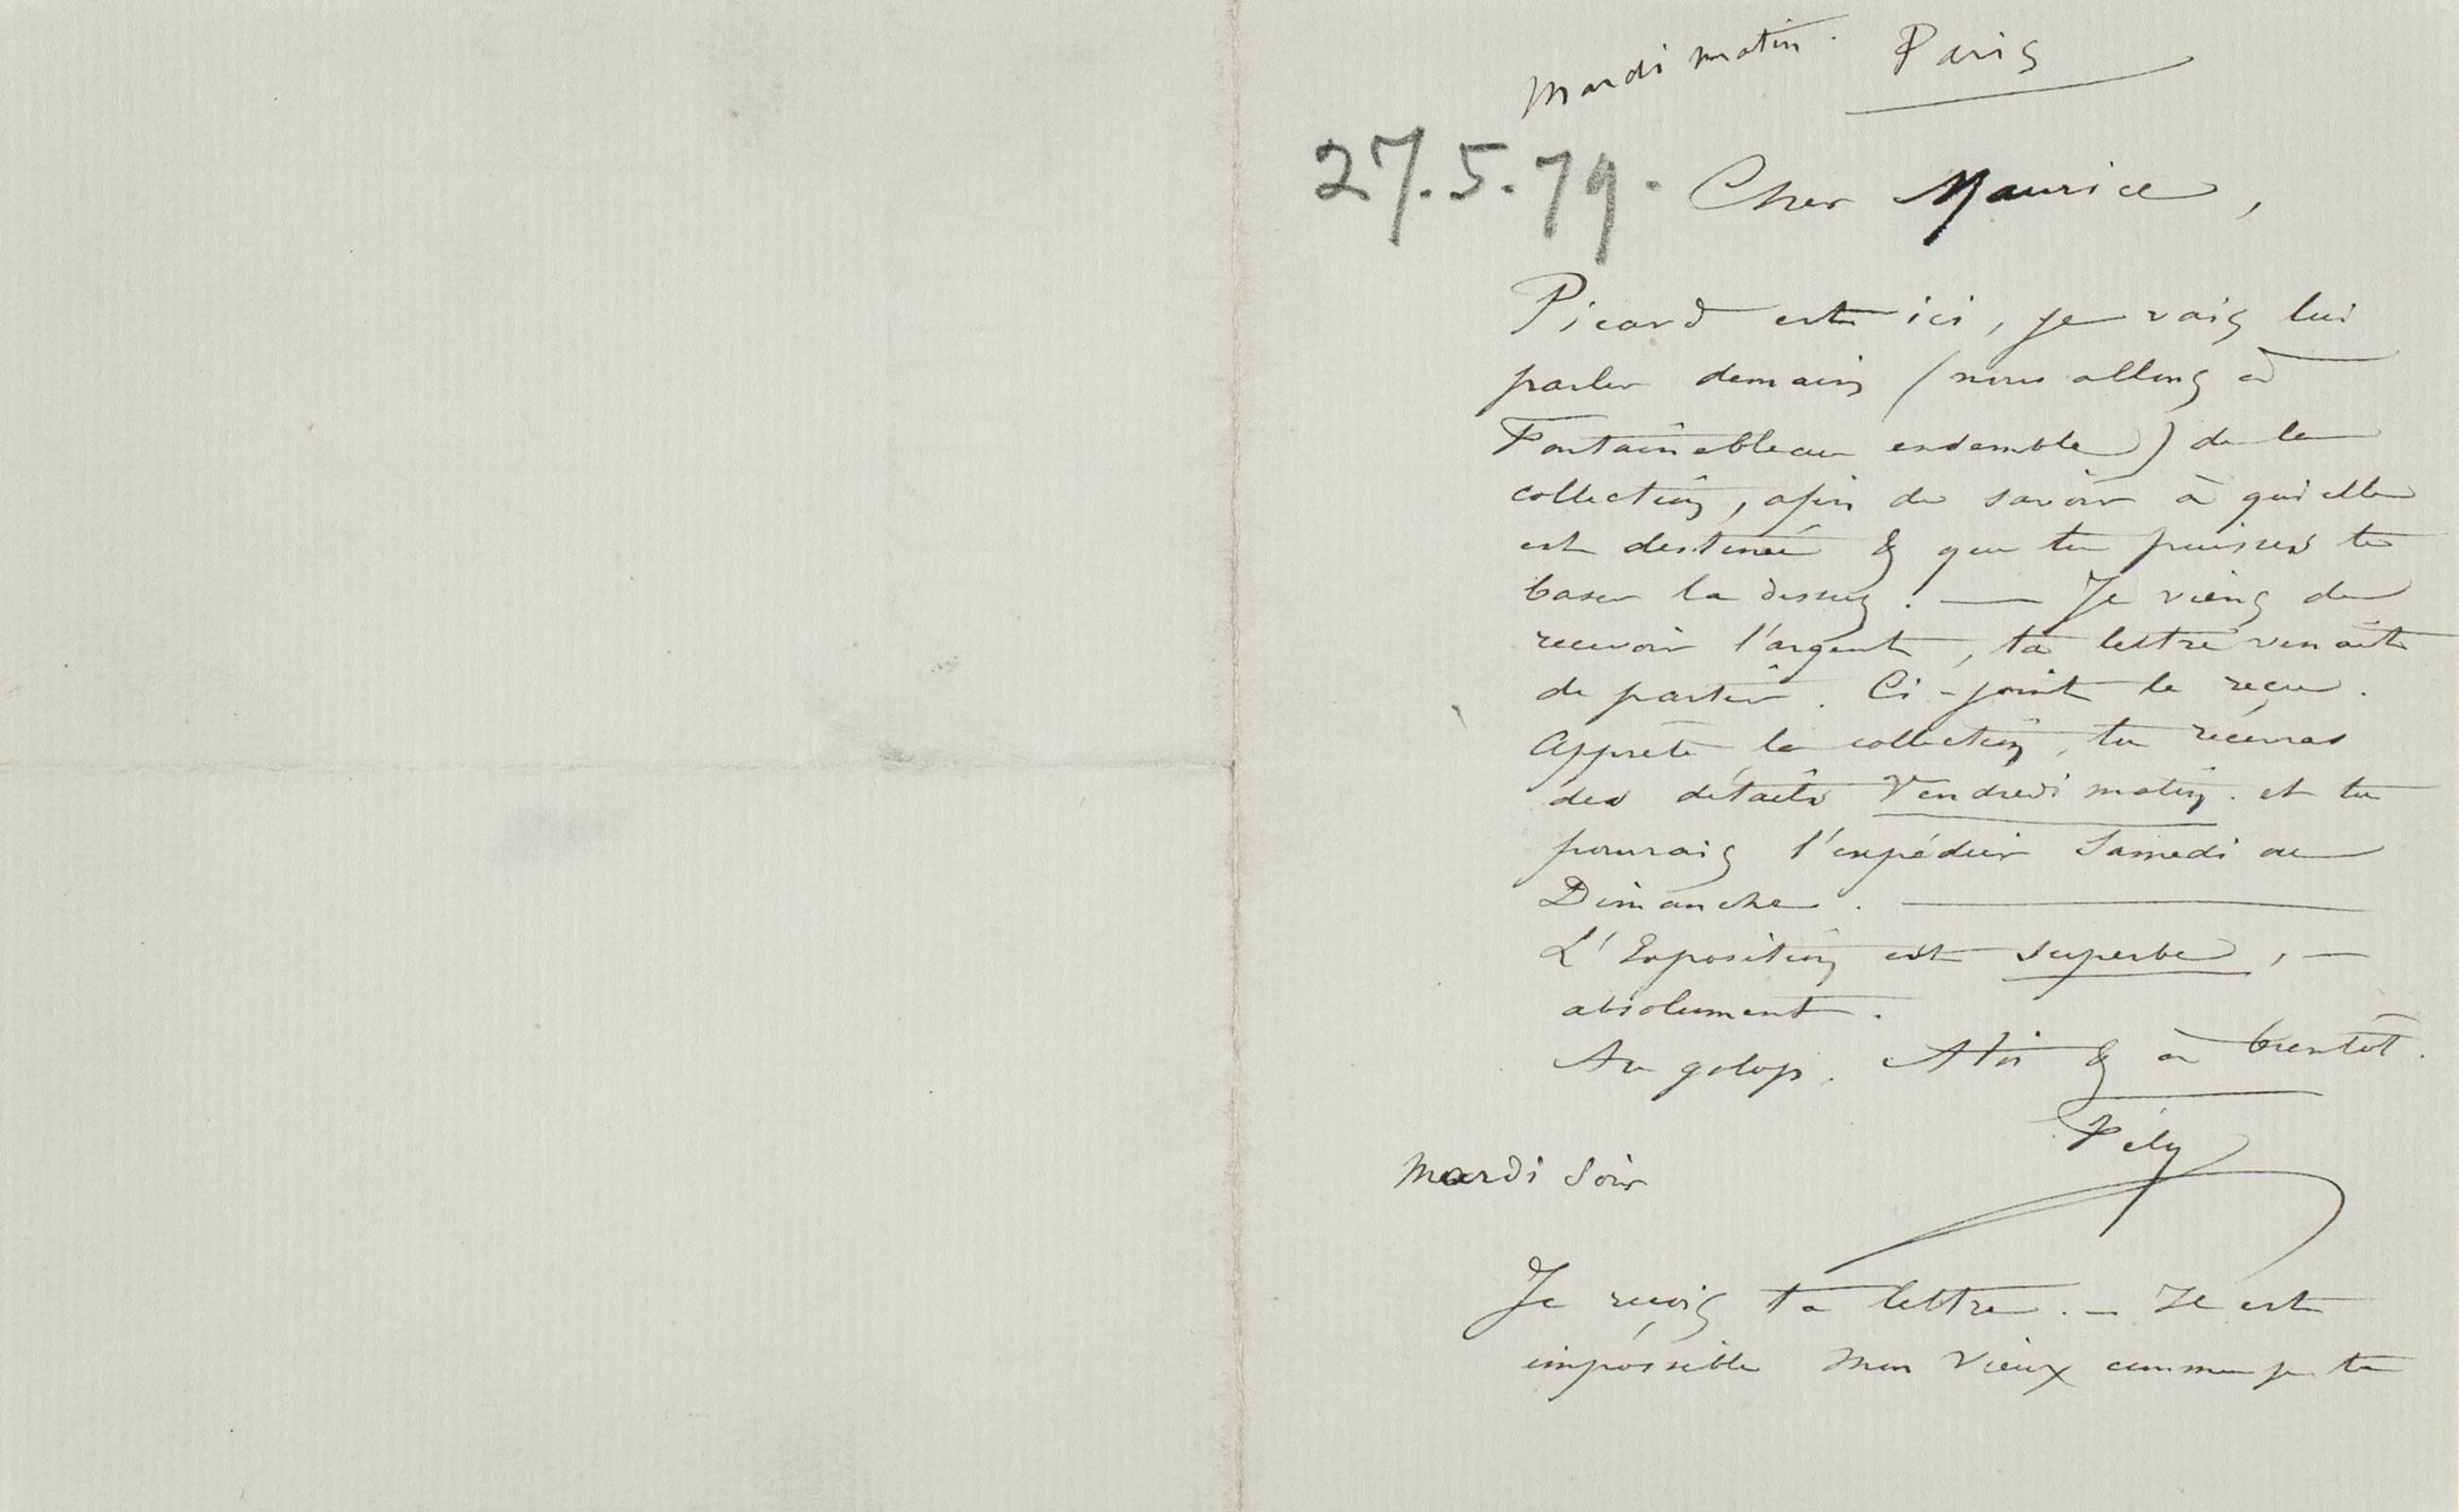 Mardi matin. Paris
27.5.79. Cher Maurice,
Picard est ici, je vais lui
parler demain (nous allons à
Fontainebleau ensemble) de la
collection, afin de savoir à qui elle
est destinée & que tu puisses te
baser la dessus. — Je viens de
recevoir l'argent, ta lettre venait
de partir. Ci-joint le reçu.
Apprête la collection, tu recevras
des détails Vendredi matin. et tu
pourrais l'expédier Samedi ou
Dimanche. —
L'Exposition est superbe, —
absolument.
Au galop. A toi & à bientôt.
Fély
Mardi Soir
Je reçois ta lettre. — Il est
impossible mon vieux comme je te